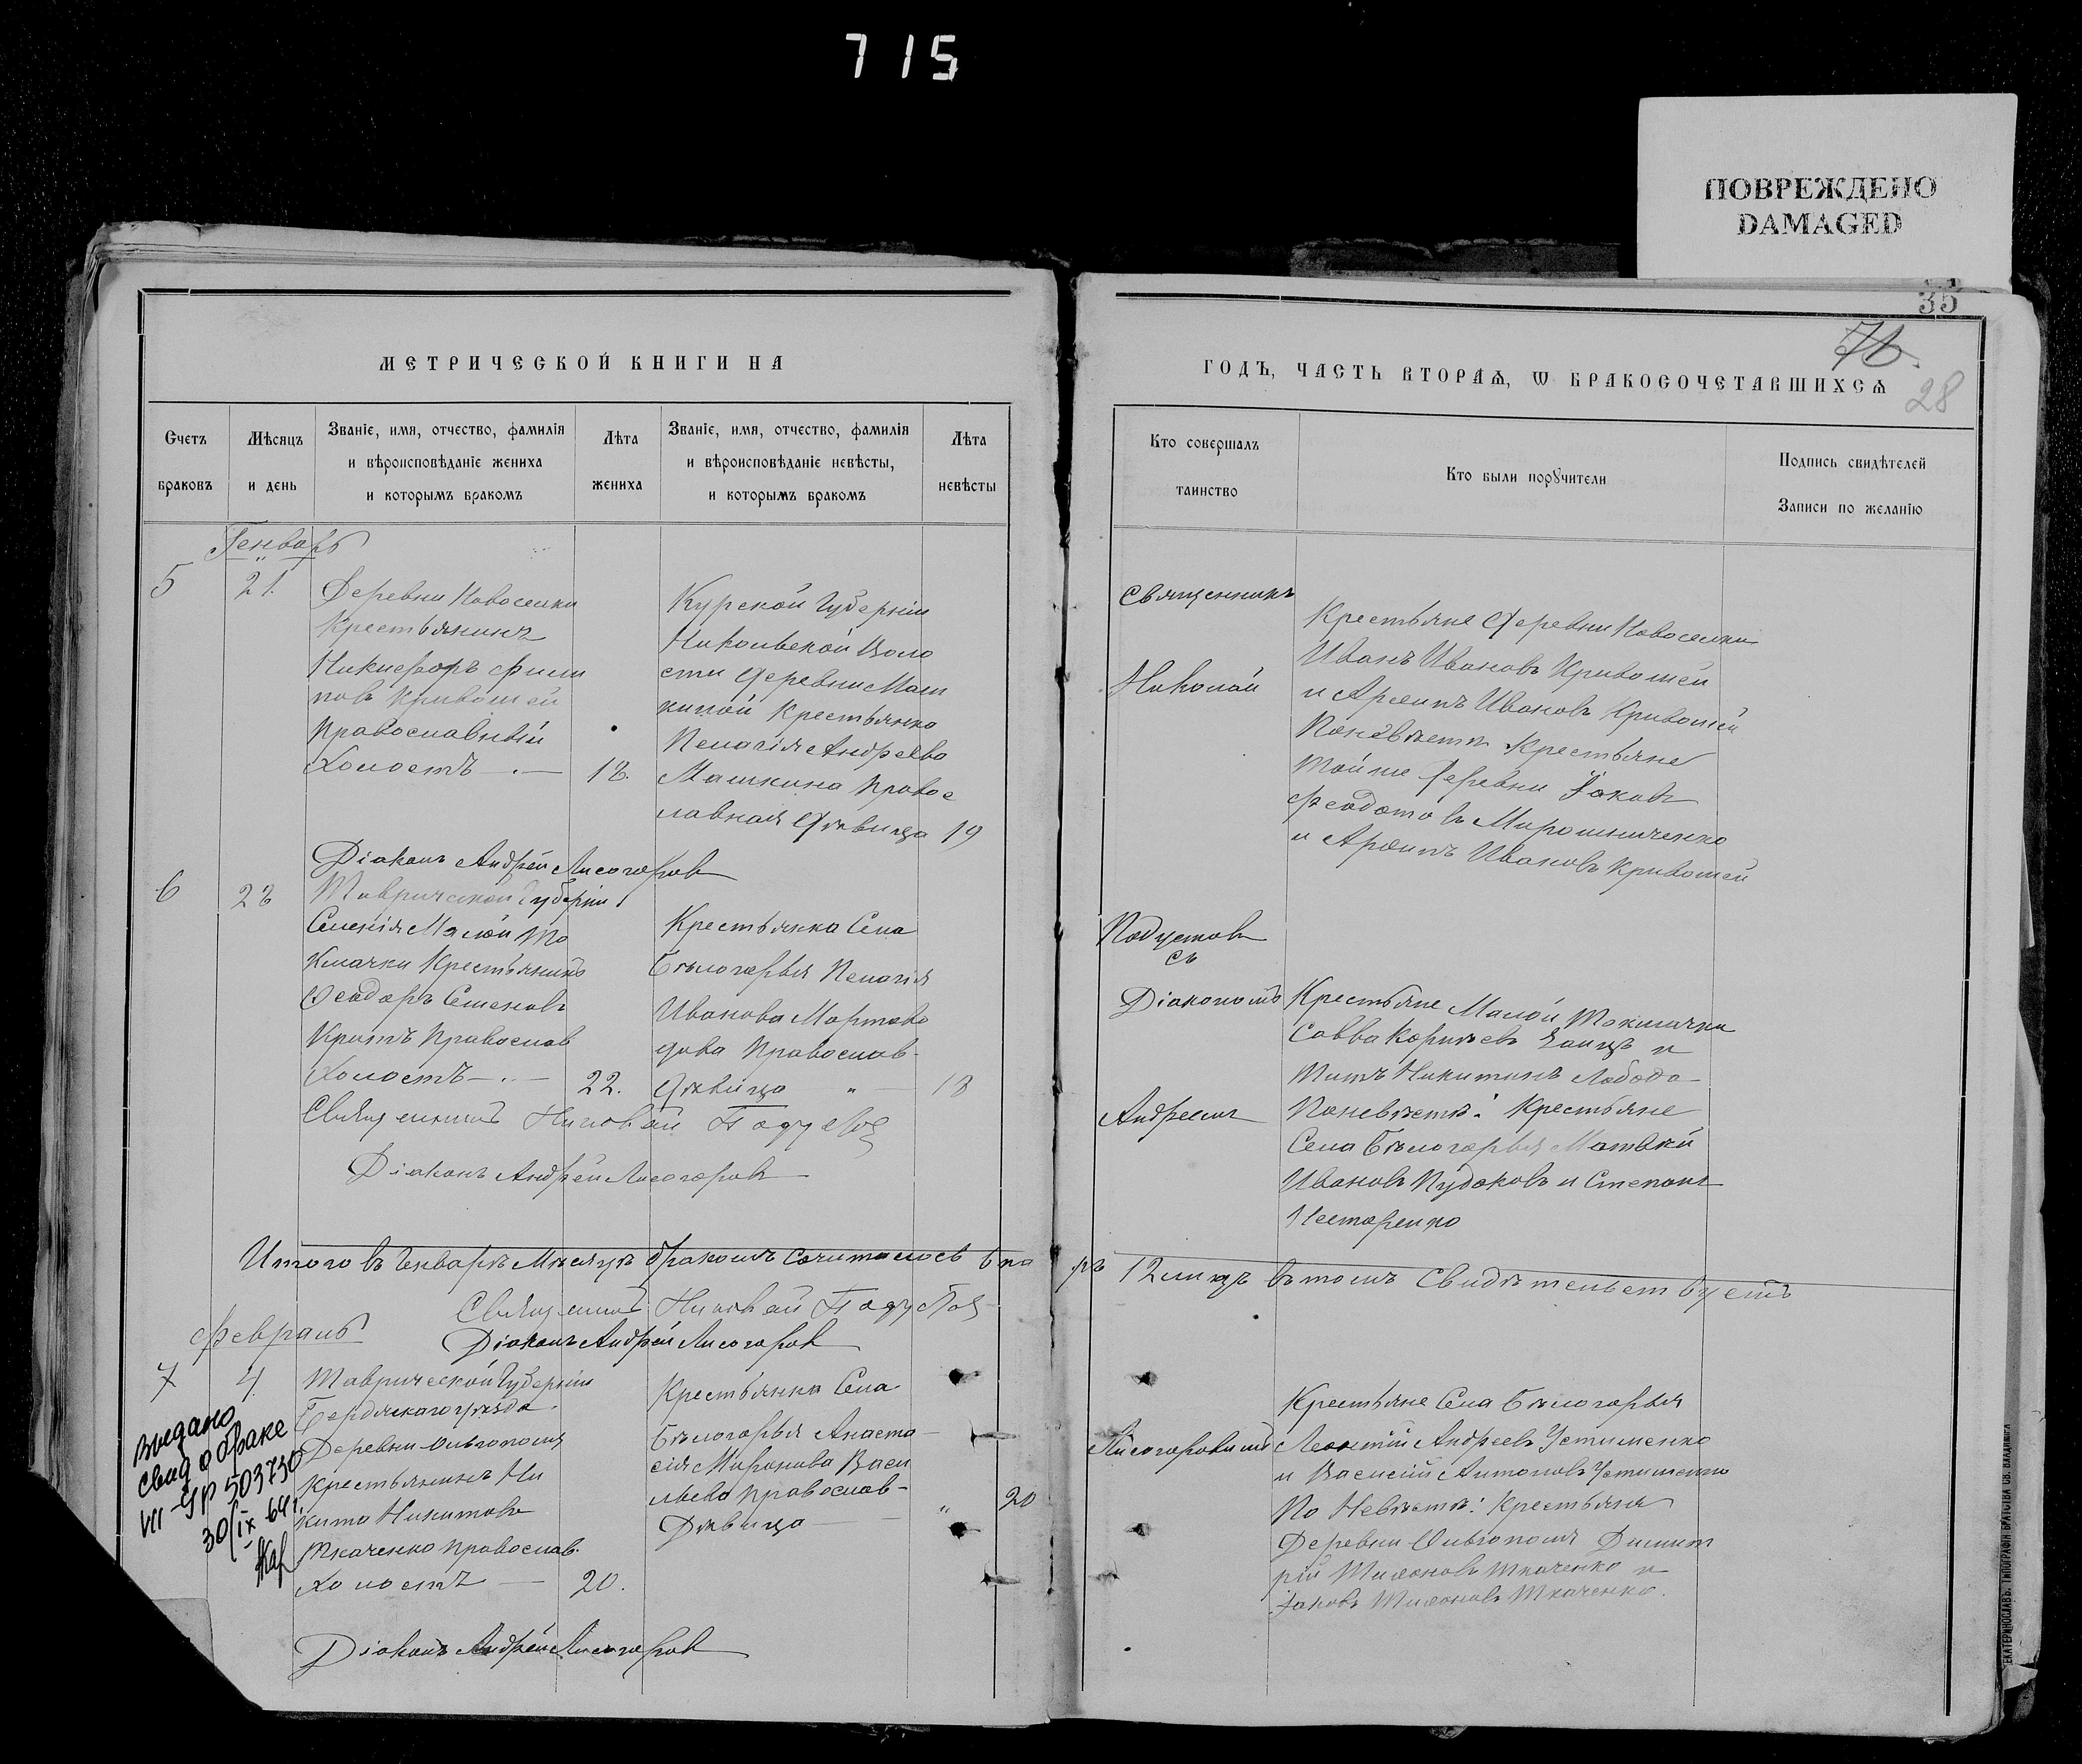 715
ПОВРЕЖДЕНО
DAMAGED
35
76.
28
МЕТРИЧЕСКОЙ КНИГИ НА
ГОДЪ, ЧАСТЬ ВТОРАѦ, Ѡ БРАКОСОЧЕТАВШИХСѦ
Счетъ браковъ
Мѣсяцъ и день
Званіе, имя, отчество, фамилія и вѣроисповѣданіе жениха и которымъ бракомъ
Лѣта жениха
Званіе, имя, отчество, фамилія и вѣроисповѣданіе невѣсты, и которымъ бракомъ
Лѣта невѣсты
Кто совершалъ таинство
Кто были порꙋчители
Подпись свидѣтелей Записи по желанію
Генварь
5
21.
Деревни Новоселки
Крестьянинъ
Никифоръ Филип
повъ Кривошей
Православный
Холостъ
18.
Курской Губерніи
Никольской Воло
сти Деревни Маш
киной Крестьянка
Пелагія Андреева
Машкина Правос
лавная Дѣвица
19
Священникъ
Николай
Крестьяне Деревни Новоселки
Иванъ Ивановъ Кривошей
и Архипъ Ивановъ Кривошей
По невѣстѣ Крестьяне
той же Деревни Іаковъ
Феодотовъ Мирошниченко
и Архипъ Ивановъ Кривошей
Діаконъ Андрей Лисогоровъ
6
28
Таврической Губерніи
Селенія Малой То
кмачки Крестьянинъ
Феодоръ Семеновъ
Кротъ Православ
Холостъ
22.
Крестьянка Села
Бѣлогорья Пелагія
Иванова
Православ-
Дѣвица
18
Подустовъ
съ
Діакономъ
Андреемъ
Крестьяне Малой Токмачки
Савва Корнѣевъ Заицъ и
Титъ Никитинъ Лобода
По невѣстѣ: Крестьяне
Села Бѣлогорья Матвѣй
Ивановъ Пудаковъ и Степанъ
Нестеренко
Священникъ Николай Подустовъ
Діаконъ Андрей Лисогоровъ
Итого въ Генварѣ Мѣсяцѣ бракомъ сочиталось 6 па
ръ 12 лицъ въ томъ Свидѣтельствуемъ
Священникъ Николай Подустовъ
Діаконъ Андрей Лисогоровъ
Февраль
7
4
Таврической Губерніи
Бердянскаго уѣзда
Деревни Ольгополя
Крестьянинъ Ни
кита Никитовъ
Ткаченко Православ.
Холостъ
20.
Крестьянка Села
Бѣлогорья Анаста
сія Миронова Васи
льева Православ-
Дѣвица
20
Лисогоровымъ
Крестьяне Села Бѣлогорья
Леонтій Андреевъ Устименко
и Василій Антоновъ Устименко
По Невѣстѣ: Крестьяне
Деревни Ольгополя Димит
рій Тихоновъ Ткаченко и
Іаковъ Тихоновъ Ткаченко.
Діаконъ Андрей Лисогоровъ
Выдано
свид о браке
VII-ЯР 503730
30/IX-64г.
ЕКАТЕРИНОСЛАВЪ. ТИПОГРАФІЯ БРАТСТВА СВ. ВЛАДИМІРА